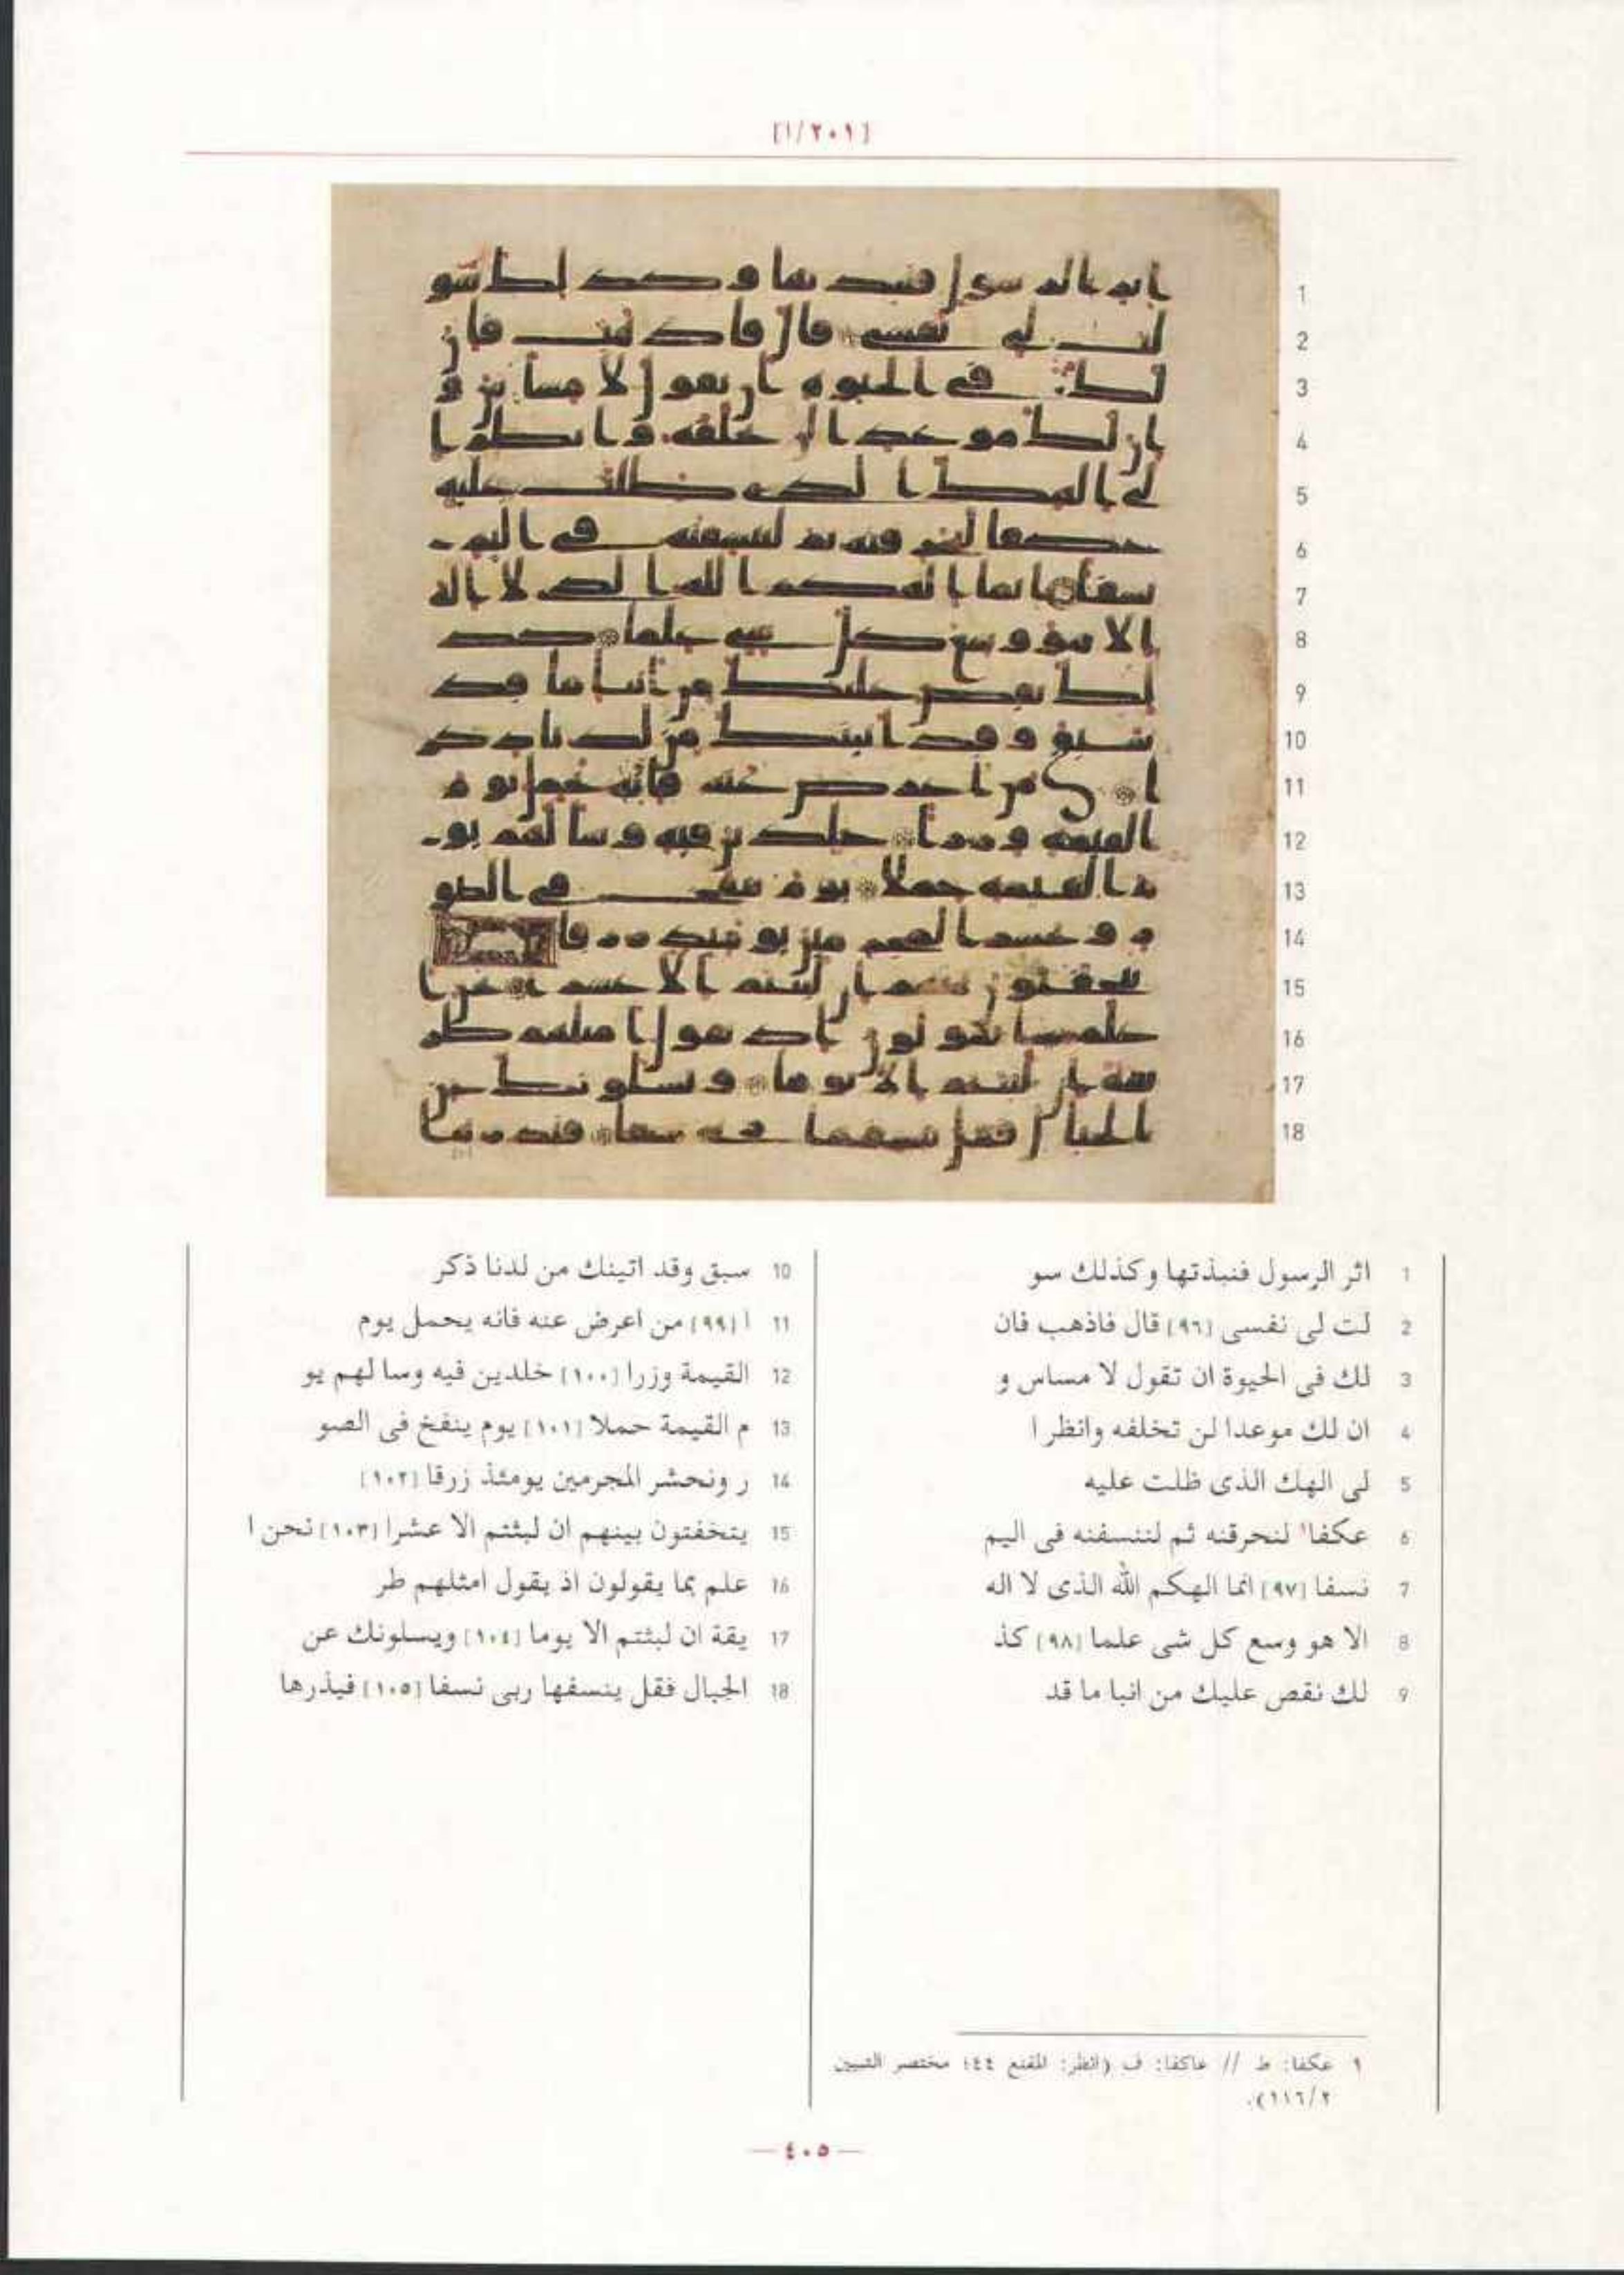 [٢٠١/أ]
1
2
3
4
5
6
7
8
9
10
11
12
13
14
15
16
17
18
1 اثر الرسول فنبذتها وكذلك سو
2 لت لى نفسى [٩٦] قال فاذهب فان
3 لك فى الحيوة ان تقول لا مساس و
4 ان لك موعدا لن تخلفه وانظر ا
5 لى الهك الذى ظلت عليه
6 عكفا١ لنحرقنه ثم لننسفنه فى اليم
7 نسفا [٩٧] انما الهكم الله الذى لا اله
8 الا هو وسع كل شى علما [٩٨] كذ
9 لك نقص عليك من انبا ما قد
10 سبق وقد اتينك من لدنا ذكر
11 ا [٩٩] من اعرض عنه فانه يحمل يوم
12 القيمة وزرا [١٠٠] خلدين فيه وسا لهم يو
13 م القيمة حملا [١٠١] يوم ينفخ فى الصو
14 ر ونحشر المجرمين يومئذ زرقا [١٠٢]
15 يتخفتون بينهم ان لبثتم الا عشرا [١٠٣] نحن ا
16 علم بما يقولون اذ يقول امثلهم طر
17 يقة ان لبثتم الا يوما [١٠٤] ويسلونك عن
18 الجبال فقل ينسفها ربى نسفا [١٠٥] فيذرها
١ عكفا: ط // عاكفا: ف (انظر: المقنع ٤٤؛ مختصر التبيين
٢/١١٦).
— ٤٠٥ —